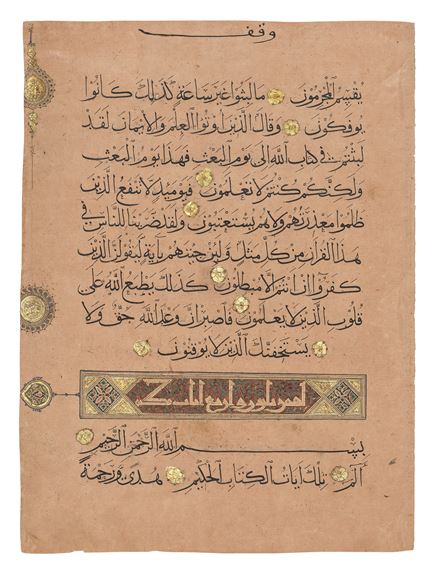 وقف
يُقْسِمُ الْمُجْرِمُونَ مَا لَبِثُوا غَيْرَ سَاعَةٍ كَذَلِكَ كَانُوا
يُوفَكُونَ وَقَالَ الَّذِينَ اُوتُوا الْعِلْمَ وَالْاِيمَانَ لَقَدْ
لَبِثْتُمْ فِي كِتَابِ اللَّهِ اِلَى يَوْمِ الْبَعْثِ فَهَذَا يَوْمُ الْبَعْثِ
وَلَكِنَّكُمْ كُنْتُمْ لَا تَعْلَمُونَ فَيَوْمَيِذٍ لَا تَنْفَعُ الَّذِينَ
ظَلَمُوا مَعْذِرَتُهُمْ وَلَا هُمْ يُسْتَعْتَبُونَ وَلَقَدْ ضَرَبْنَا لِلنَّاسِ فِي
هَذَا الْقُرْاَنِ مِنْ كُلِّ مَثَلٍ وَلَيِنْ جِيتَهُمْ بِاَيَةٍ لَيَقُولَنَّ الَّذِينَ
كَفَرُوا اِنْ اَنْتُمْ اِلَّا مُبْطِلُونَ كَذَلِكَ يَطْبَعُ اللَّهُ عَلَى
قُلُوبِ الَّذِينَ لَا يَعْلَمُونَ فَاصْبِرْ اِنَّ وَعْدَ اللَّهِ حَقٌّ وَلَا
يَسْتَخِفَّنَّكَ الَّذِينَ لَا يُوقِنُونَ
بِسْمِ اللَّهِ الرَّحْمَنِ الرَّحِيمِ
الم تِلْكَ اَيَاتُ الْكِتَابِ الْحَكِيمِ هُدًى وَرَحْمَةً